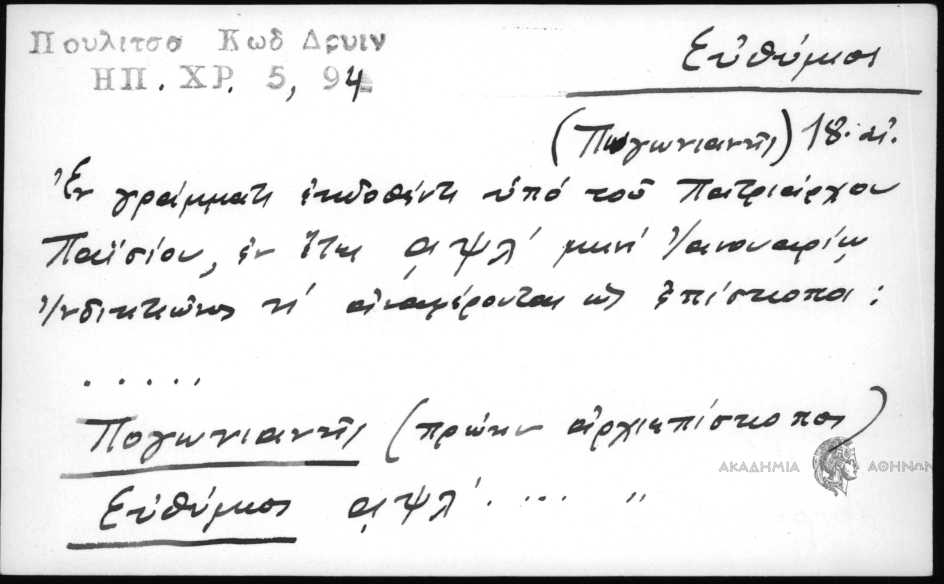 Πουλιτσα Κωδ Δρυιν
ΗΠ. ΧΡ. 5, 94
Εὐθύμιος
(Πωγωνιαννῆς) 18. αἰ.
Ἐν γράμματι ἐκδοθέντι ὑπό τοῦ Πατριάρχου
Παϊσίου, ἐν ἔτει ͵αψλ΄ μηνί Ἰαννουαρίῳ
Ἰνδικτιῶνος η΄ ἀναφέρονται ὡς ἐπίσκοποι :
. . . . .
Πογωνιαννῆς (πρώην ἀρχιεπίσκοπος)
Εὐθύμιος ͵αψλ΄ . . . . "
ΑΚΑΔΗΜΙΑ ΑΘΗΝΩΝ